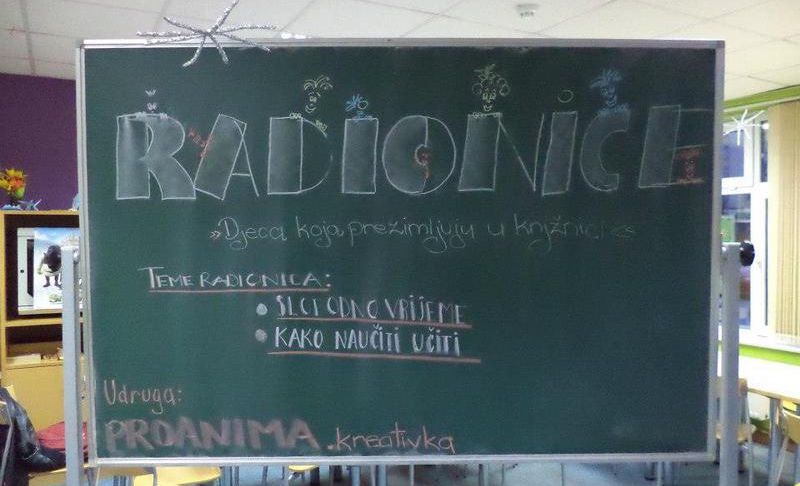 RADIONICE
"Djeca koja prezimljuju u knjžnici"
TEME RADIONICA:
• SLOBODNO VRIJEME
• KAKO NAUČITI UČITI
Udruga:
PROANIMA.kreativka